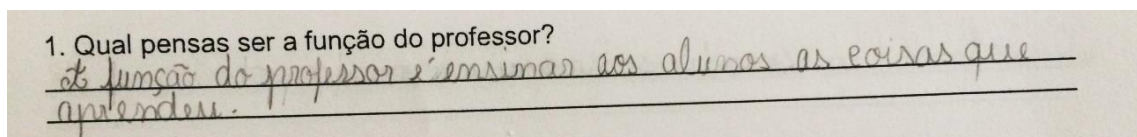 1. Qual pensas ser a função do professor?
A função do professor é ensinar aos alunos as coisas que
aprendeu.